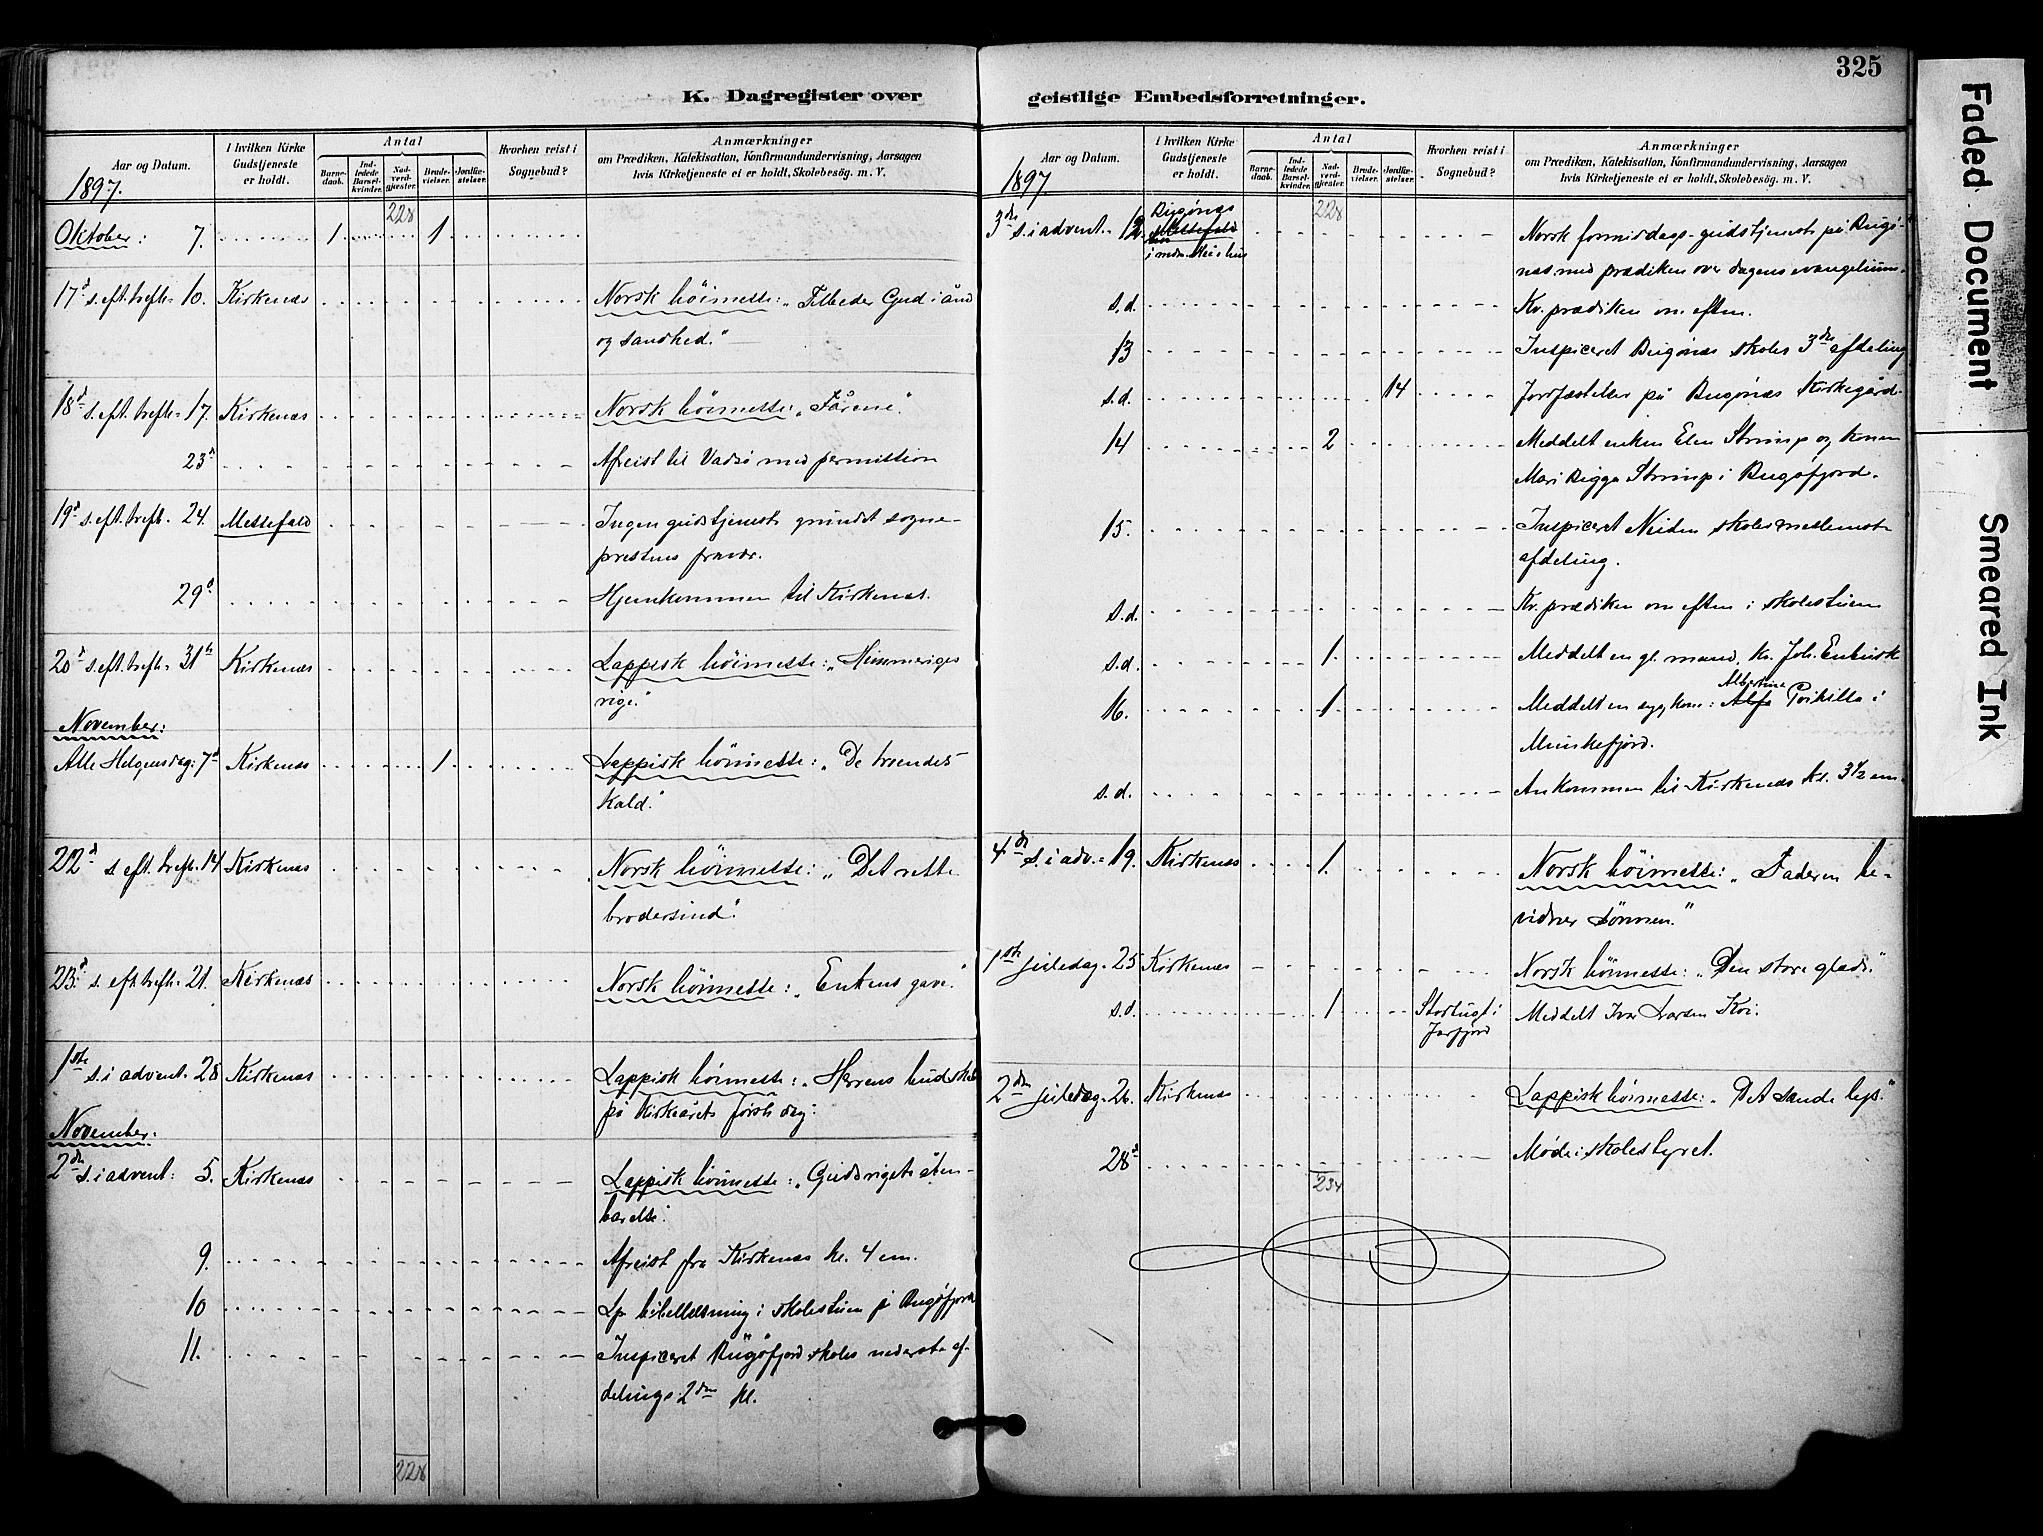 325
K. Dagregister over
geistlige Embedsforretninger.
Aar og Datum.
I hvilken Kirke Gudstjeneste er holdt.
Antal
Barne-daab.
Ind-ledede Barsel-kvinder.
Nad-verd-gjester.
Brude-vielser.
Jordfæ-stelser.
Hvorhen reist i Sognebud?
Anmærkninger
om Prædiken, Katekisation, Konfirmandundervisning, Aarsagen
hvis Kirketjeneste ei er holdt, Skolebesøg. m. V.
1897.
228
Oktober: 7. 1 1
17d s. eft. trefh. 10. Kirkenæs Norsk höimesse: „Tilbeder Gud i ånd
og sandhed."
18d s. eft. trefh. 17. Kirkenæs Norsk höimesse: „Fårene".
23d Afreist til Vadsö med permission
19d s. eft. trefh. 24. Messefald Ingen gudstjeneste grundet sogne-
prestens fravær.
29d Hjemkommen til Kirkenæs.
20d s. eft. trefh. 31te Kirkenæs Lappisk höimesse: „Himmeriges
rige."
November:
Alle Helgensdag: 7d Kirkenæs 1 Lappisk höimesse: „De troendes
kald."
22d s. eft. trefh. 14 Kirkenæs Norsk höimesse: „Det rette
brodersind".
23d s. eft. trefh. 21. Kirkenæs Norsk höimesse: „Enkens gave."
1ste s. i advent. 28 Kirkenæs Lappisk höimesse: „Herrens budskab
på kirkeårets förste dag".
November:
2den s. i advent: 5. Kirkenæs Lappisk höimesse: „Gudsrigets åben-
barelse".
9. Afreist fra Kirkenæs kl. 4 em.
10 Lp. bibellæsning i skolestuen på Bugöfjord
11. Inspiceret Bugöfjord skoles nederste af-
delings 2den kl.
228
Aar og Datum.
I hvilken Kirke Gudstjeneste er holdt.
Antal
Barne-daab.
Ind-ledede Barsel-kvinder.
Nad-verd-gjester.
Brude-vielser.
Jordfæ-stelser.
Hvorhen reist i Sognebud?
Anmærkninger
om Prædiken, Katekisation, Konfirmandundervisning, Aarsagen
hvis Kirketjeneste ei er holdt, Skolebesøg. m. V.
1897
228
3die s. i advent. 12. Bugönæs Norsk formiddags-gudstjeneste på Bugö-
næs med prædiken over dagens evangelium.
s.d. Kv. prædiken om eftm.
13 Inspiceret Bugönæs skoles 3die afdeling
s.d. 14 Jordfæstelser på Bugönæs Kirkegård.
14 2 Meddelt enken Elen Strimp og konen
Mari Bigga Strimp i Bugöfjord.
15. Inspiceret Neiden skoles mellemste
afdeling.
s.d. Kv. prædiken om eftm i skolestuen
s.d. 1. Meddelt en gl. mand, Kv. Joh.
16. 1 Meddelt en syg kone: Albertine
Munkefjord.
s.d. Ankommen til Kirkenæs kl. 3½ em.
4de s. i adv. 19. Kirkenæs 1. Norsk höimesse: „Faderen be-
vidner Sönnen."
1ste juledag. 25 Kirkenæs Norsk höimesse: „Den store glæde."
s.d. 1 Storbugt i
Jarfjord Meddelt Ivar Larsen Koi.
2den juledag. 26. Kirkenæs Lappisk höimesse: „Det sande lys."
28d Möde i skolestyret.
234
Faded Document
Smeared Ink